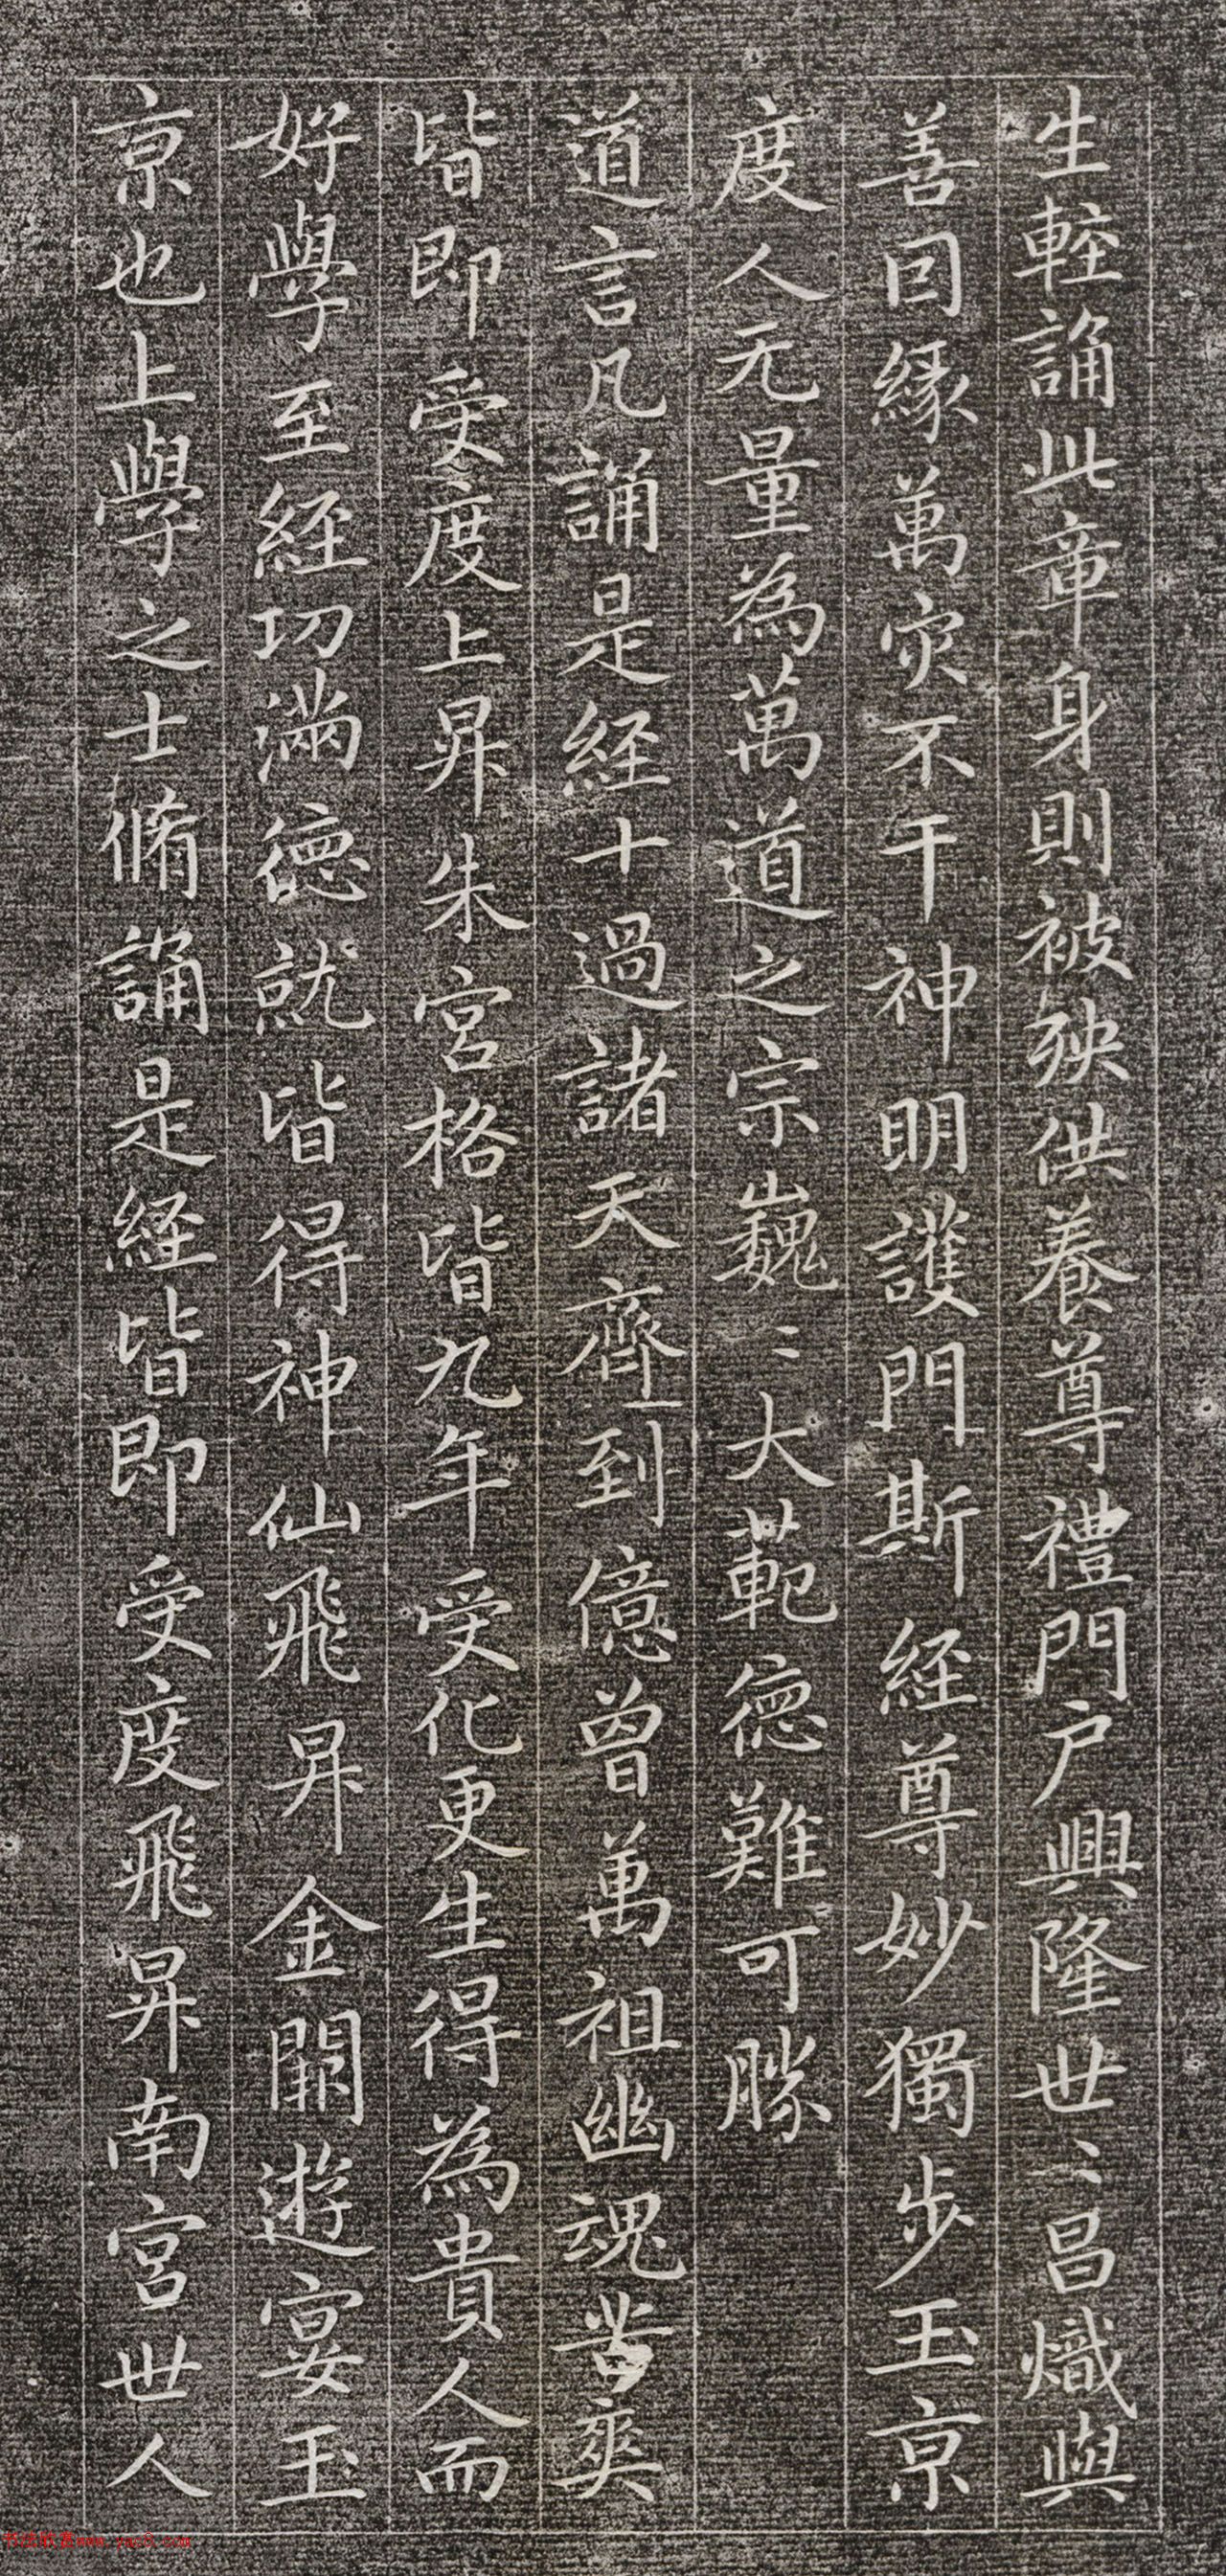 生輕誦此章身則被殃供養尊禮門户興隆世〻昌熾與
善囙緣萬灾不干神明護門斯経尊妙獨步玉京
度人无量為萬道之宗巍〻大範德難可勝
道言凡誦是経十過諸天齊到億曽萬祖幽魂苦爽
皆即受度上昇朱宮格皆九年受化更生得為貴人而
好學至経功滿德就皆得神仙飛昇金闕遊宴玉
京也上學之士脩誦是経皆即受度飛昇南宮世人